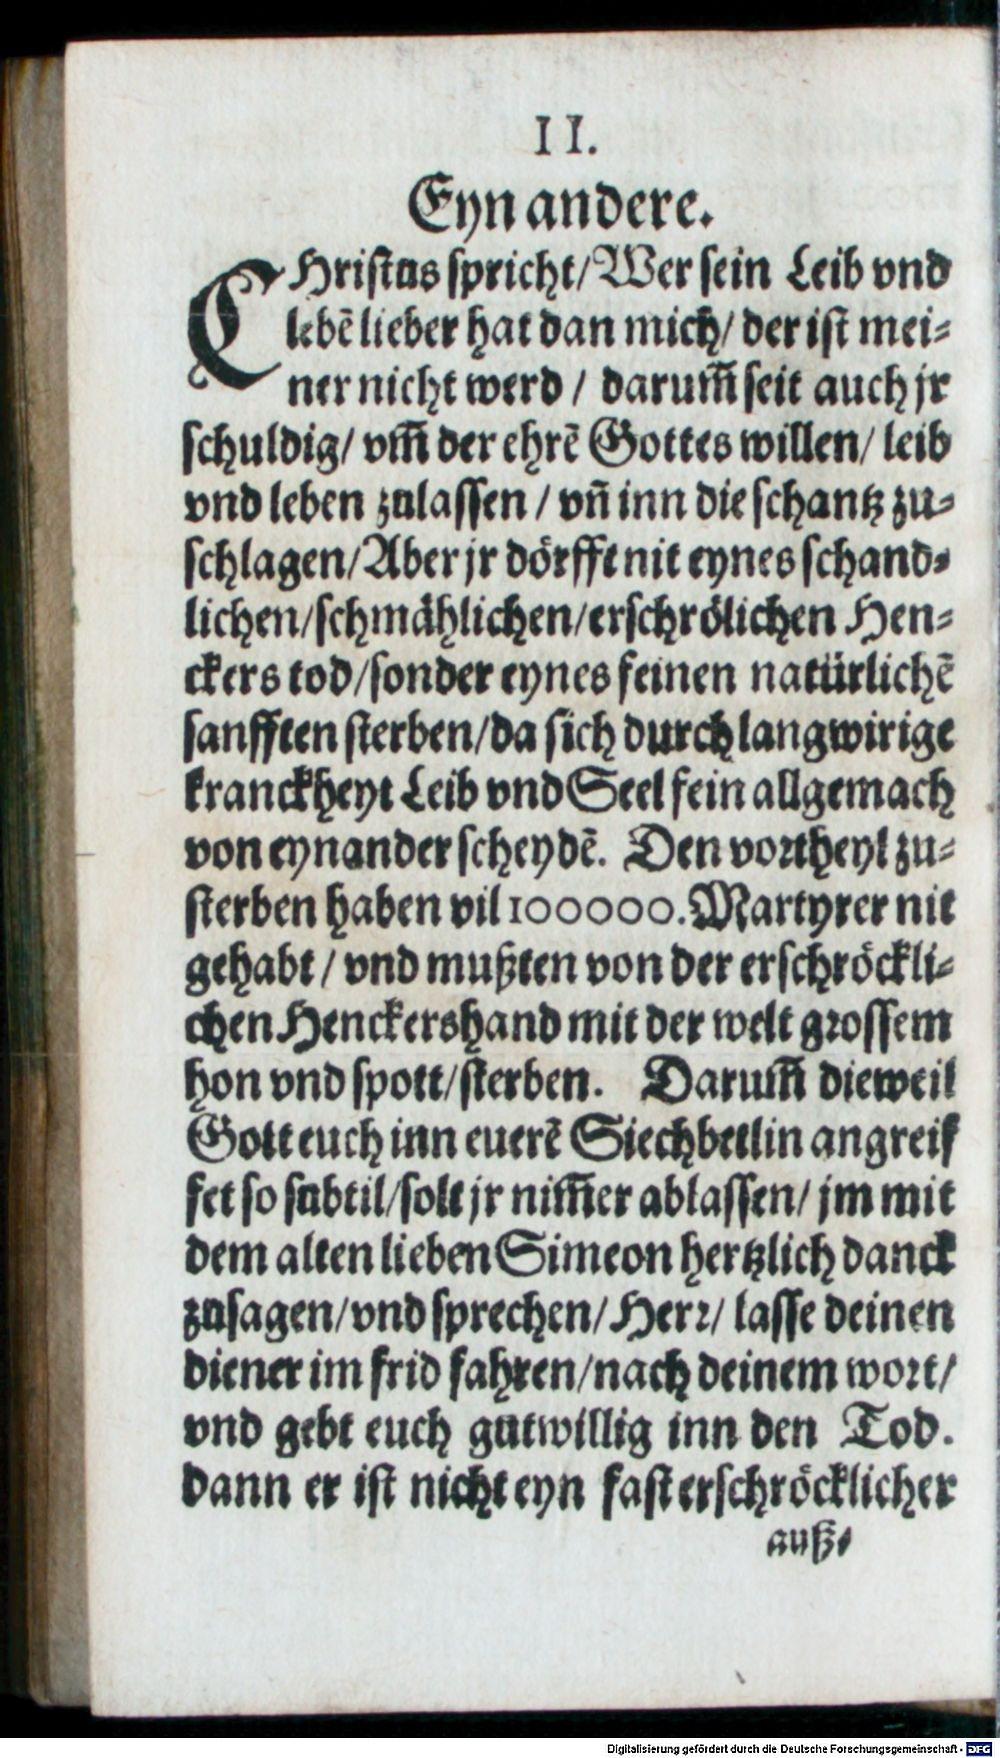 II.
Eyn andere.
CHristus spricht/ Wer sein Leib vnd
lebẽ lieber hat dan mich/ der ist mei⸗
ner nicht werd / darum̃ seit auch jr
schuldig/ vm̃ der ehrẽ Gottes willen/ leib
vnd leben zulassen / vn̄ inn die schantz zu⸗
schlagen/ Aber jr dörfft nit eynes schand⸗
lichen/ schmählichen/ erschrölichen Hen⸗
ckers tod/ sonder eynes feinen natürlichẽ
sanfften sterben/ da sich durch langwirige
kranckheyt Leib vnd Seel fein allgemach
von eynander scheydẽ. Den vortheyl zu⸗
sterben haben vil 100000. Martyrer nit
gehabt / vnd mußten von der erschröckli⸗
chen Henckershand mit der welt grossem
hon vnd spott/ sterben. Darum̃ dieweil
Gott euch inn euerẽ Siechbettlin angreif
fet so subtil/ solt jr nim̃er ablassen/ jm mit
dem alten lieben Simeon hertzlich danck
zusagen/ vnd sprechen/ Herr/ lasse deinen
diener im frid fahren/ nach deinem wort/
vnd gebt euch gutwillig inn den Tod.
dann er ist nicht eyn fast erschröcklicher
auß⸗
Digitalisierung gefördert durch die Deutsche Forschungsgemeinschaft - DFG